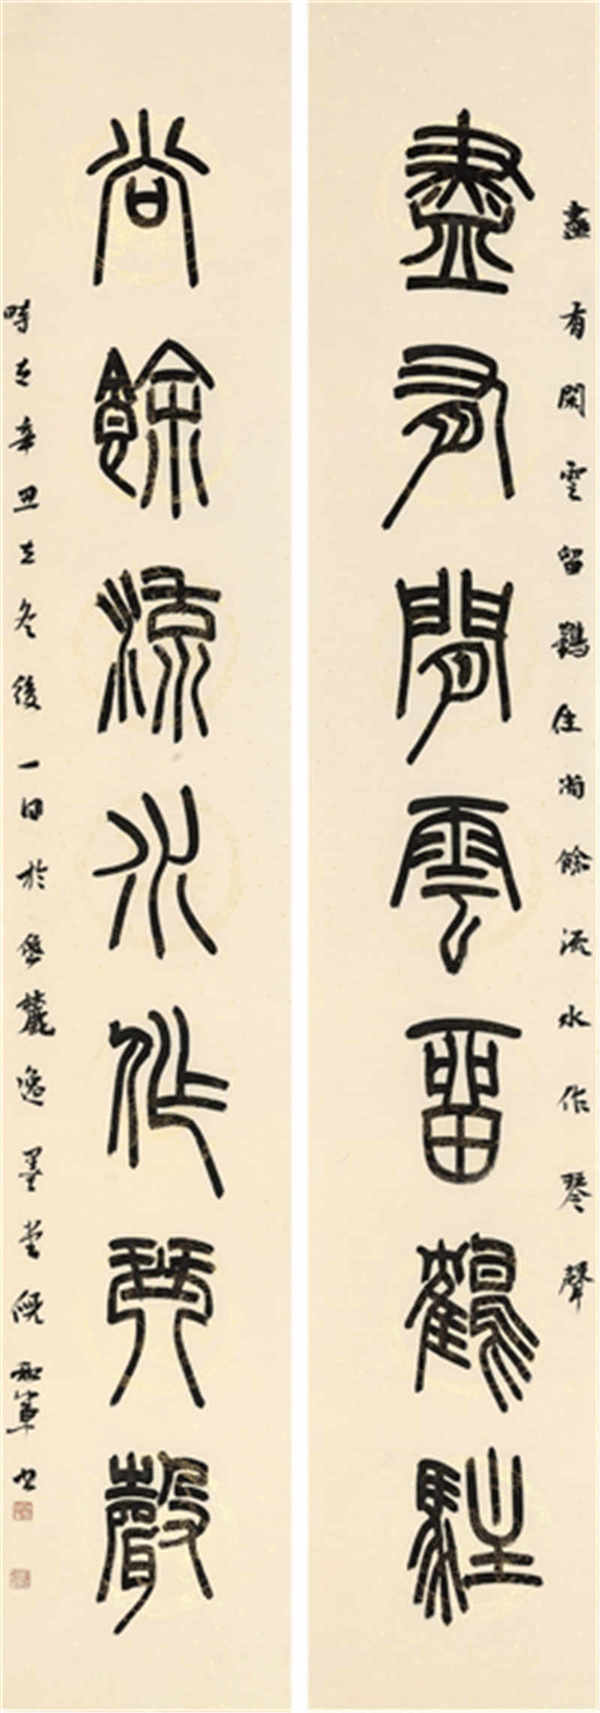 盡有閑雲留鶴住尚餘流水作琴聲
盡有閒雲留鶴駐
尚餘流水作琴聲
時在辛丑立冬後一日於麓逸墨堂軍書